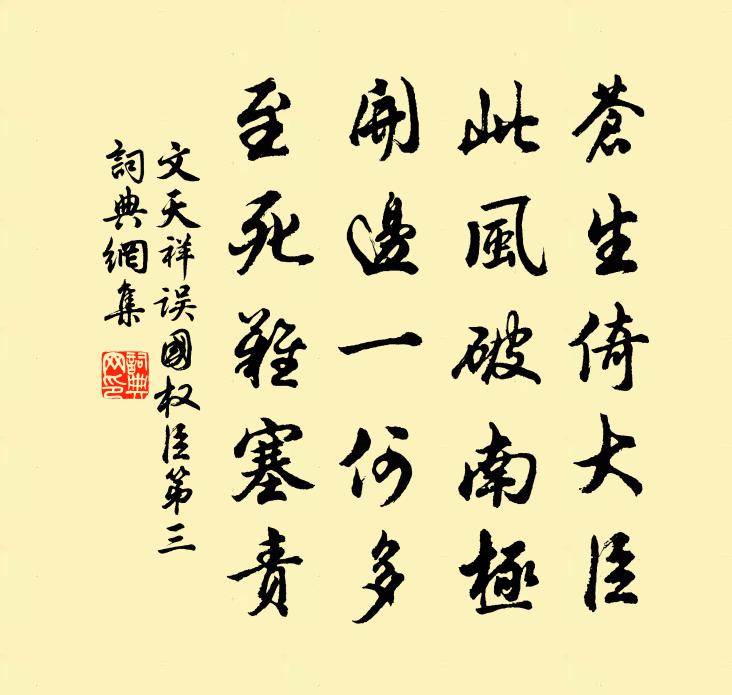 蒼生倚大臣
此風破南極
開邊一何多
至死難塞責
文天祥誤國权臣第三
詞典網集
詞典
网印